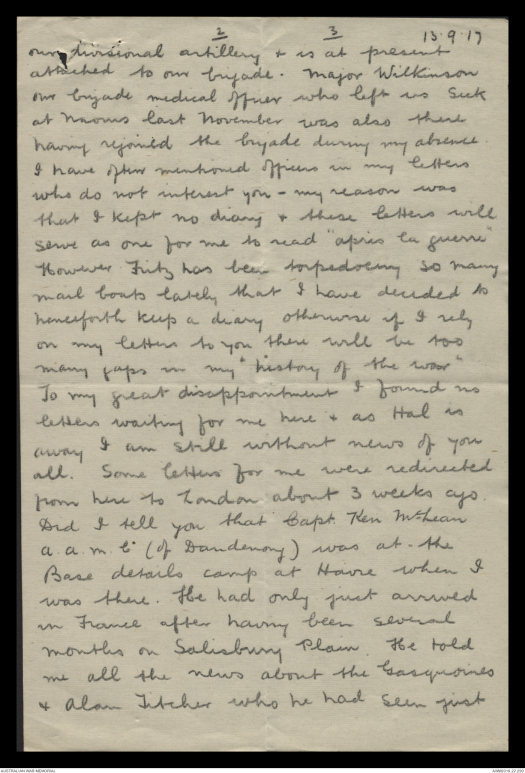 2 3 13.9.17
our divisional artillery & is at present
attached to our brigade. Major Wilkinson
our brigade medical officer who left us sick
at Naours last November was also there
having rejoined the brigade during my absence.
I have often mentioned officers in my letters
who do not interest you - my reason was
that I kept no diary & these letters will
serve as one for me to read "apris la guerre"
However Fritz has been torpedoeing so many
mail boats lately that I have decided to
henceforth keep a diary otherwise if I rely
on my letters to you there will be too
many gaps in my "history of the war"
To my great disappointment I found no
letters waiting for me here & as Hal is
away I am still without news of you
all. Some letters for me were redirected
from here to London about 3 weeks ago.
Did I tell you that Capt. Ken McLean
a.a.m.C (of Dandenong) was at the
Base details camp at Havre when I
was there. He had only just arrived
in France after having been several
months on Salisbury Plain. He told
me all the news about the Gasquoines
& Alan Fitcher who he had seen just
AUSTRALIAN WAR MEMORIAL